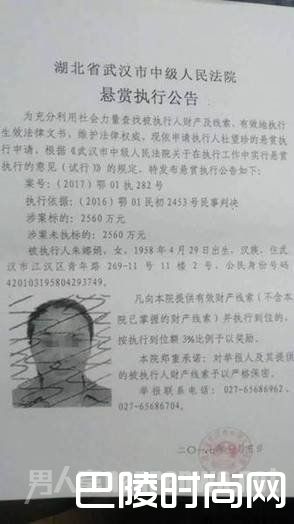 湖北省武汉市中级人民法院
悬赏执行公告
为充分利用社会力量查找被执行人财产及线索，有效地执行
生效法律文书，维护法律权威，现依申请执行人杜望珍的悬赏执
行申请，根据《武汉市中级人民法院关于在执行工作中实行悬赏
执行的意见（试行）》的规定，特发布悬赏执行公告如下：
案号：（2017）鄂 01 执 282 号
执行依据：（2016）鄂 01 民初 2453 号民事判决
涉案标的：2560 万元
涉案未执标的：2560 万元
被执行人朱娜娟，女，1958 年 4 月 29 日出生，汉族，住武
汉市江汉区青年路 269-11 号 11 楼 2 号，公民身份号码
420103195804293749。
凡向本院提供有效财产线索（不含本
院已掌握的财产线索）并执行到位的，
按执行到位额 3%比例予以奖励。
本院郑重承诺：对举报人及其提供
的被执行人财产线索予以严格保密。
举报联系电话：027-65686962、
027-65686704。
二〇一七年
男人
巴陵时尚网